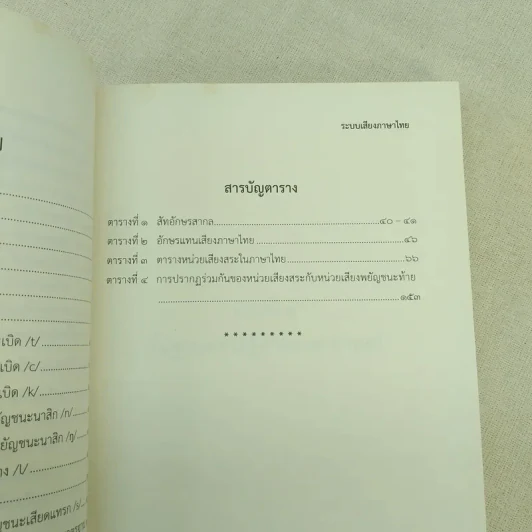 เบิด /t/
เบิด /c/
เบิด /k/
พยัญชนะนาสิก /ŋ/
/l/
ระบบเสียงภาษาไทย
สารบัญตาราง
ตารางที่ ๑ สัทอักษรสากล ๔๐ – ๔๑
ตารางที่ ๒ อักษรแทนเสียงภาษาไทย ๔๖
ตารางที่ ๓ ตารางหน่วยเสียงสระในภาษาไทย ๖๖
ตารางที่ ๔ การปรากฏร่วมกันของหน่วยเสียงสระกับหน่วยเสียงพยัญชนะท้าย
๑๕๓
* * * * * * * * *